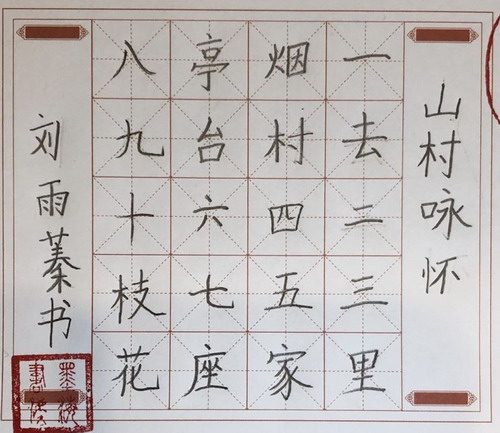 山村咏怀
一去二三里
烟村四五家
亭台六七座
八九十枝花
刘雨蓁书